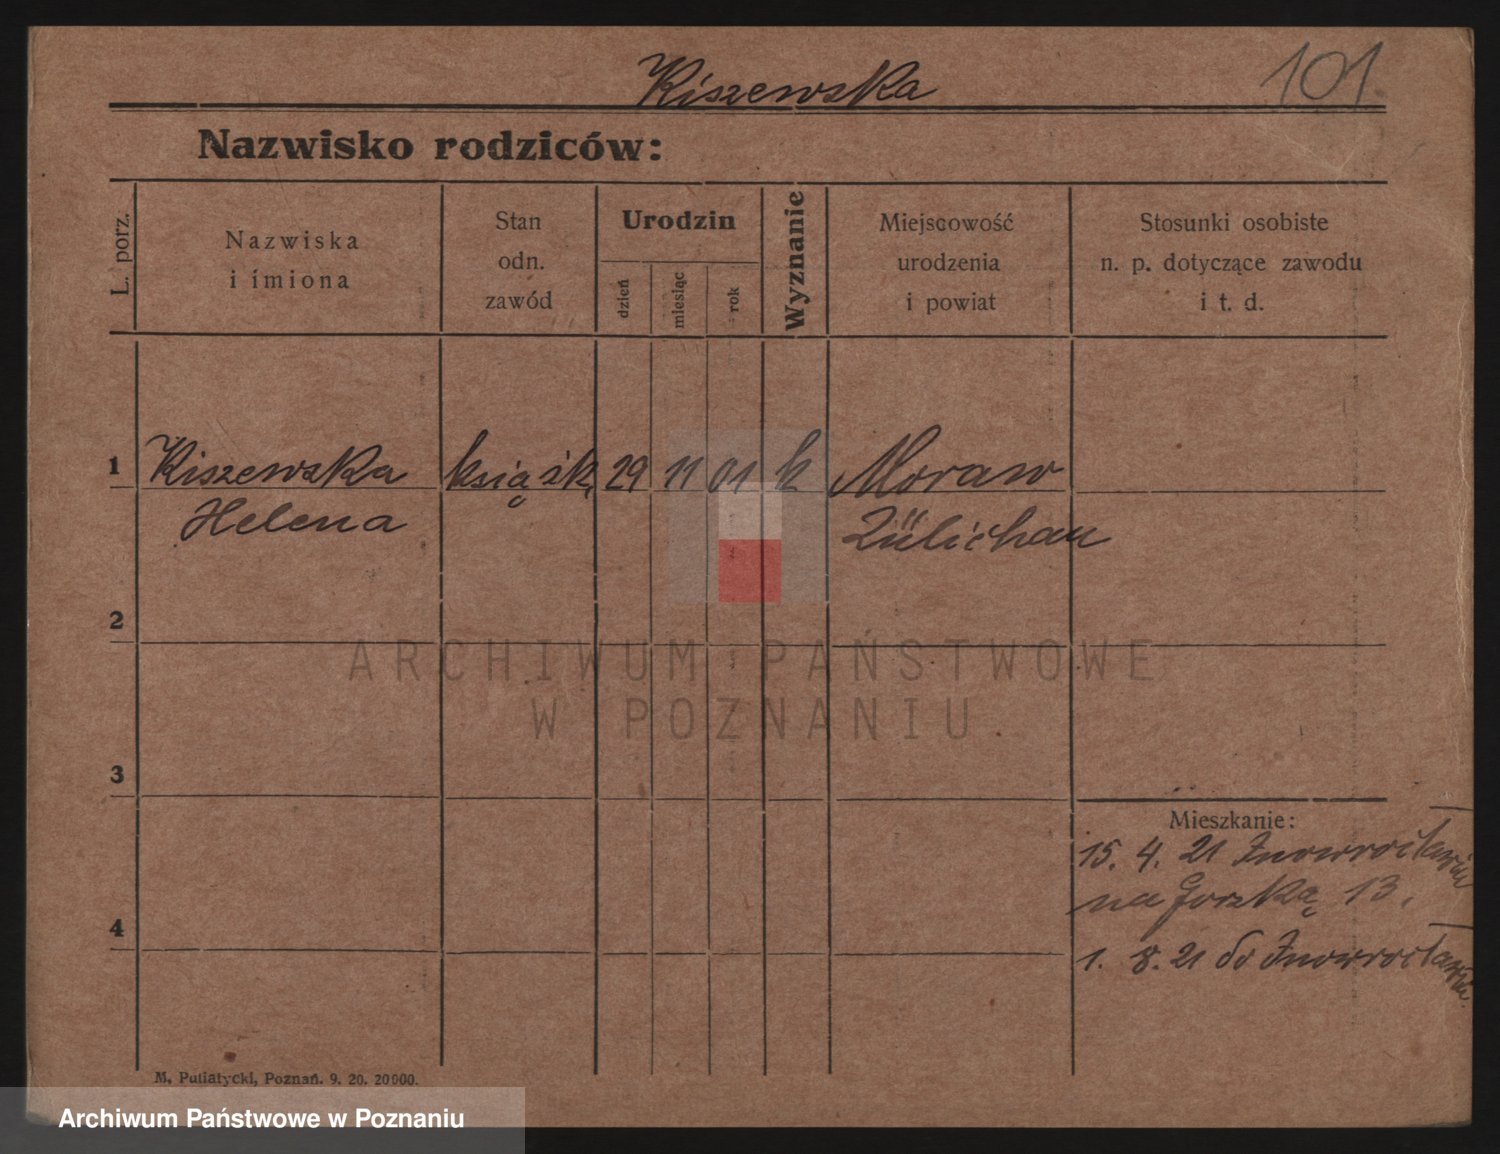 Kiszewska 101.
Nazwisko rodziców:
L. porz.
Nazwiska
i imiona
Stan
odn.
zawód
Urodzin
dzień
miesiąc
rok
Wyznanie
Miejscowość
urodzenia
i powiat
Stosunki osobiste
n. p. dotyczące zawodu
i t. d.
1 Kiszewska 29 11 01 k Moraw
Helena Züllichau
2
3
4
Mieszkanie:
15. 4. 21 Inowrocławia
na Gorzką 13.
1. 8. 21 do Inowrocławia.
M. Putiatycki, Poznań. 9. 20. 20000.
ARCHIWUM PAŃSTWOWE
W POZNANIU
Archiwum Państwowe w Poznaniu